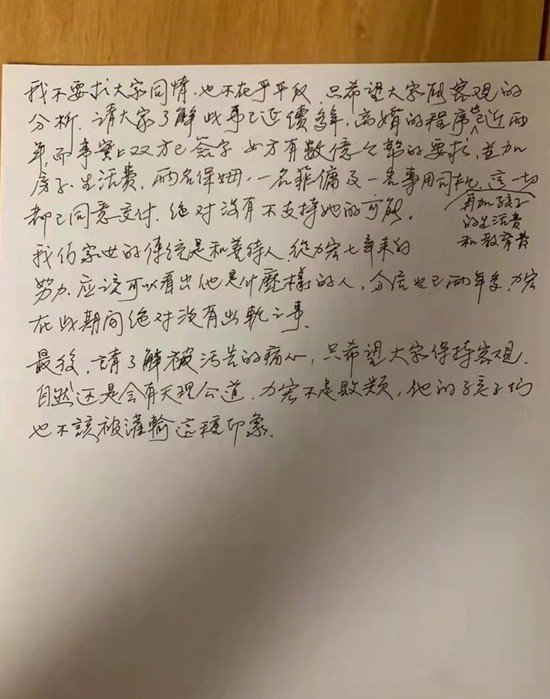 我不要求大家同情.也不在乎平反.只希望大家用客观的
分析.請大家了解此事已延續多年,离婚的程序也已近两
年,而事實上双方已簽字.女方有数億的要求,並加
房子.生活費.兩名保姆.一名菲傭及一名專用司机.這一切
再加孩子
的生活费
和教育费
都已同意交付.绝对没有不支持她的可能.
我们家世的傳统是和善待人.從力宏七年来的
努力.应該可以看出他是什麼樣的人,分居也已两年多.力宏
在此期间绝对没有出軌之事.
最後,請了解被污告的痛心,只希望大家保持客观.
自然还是会有天理公道.力宏不是败类,他的孩子们
也不該被灌輸這種印象.